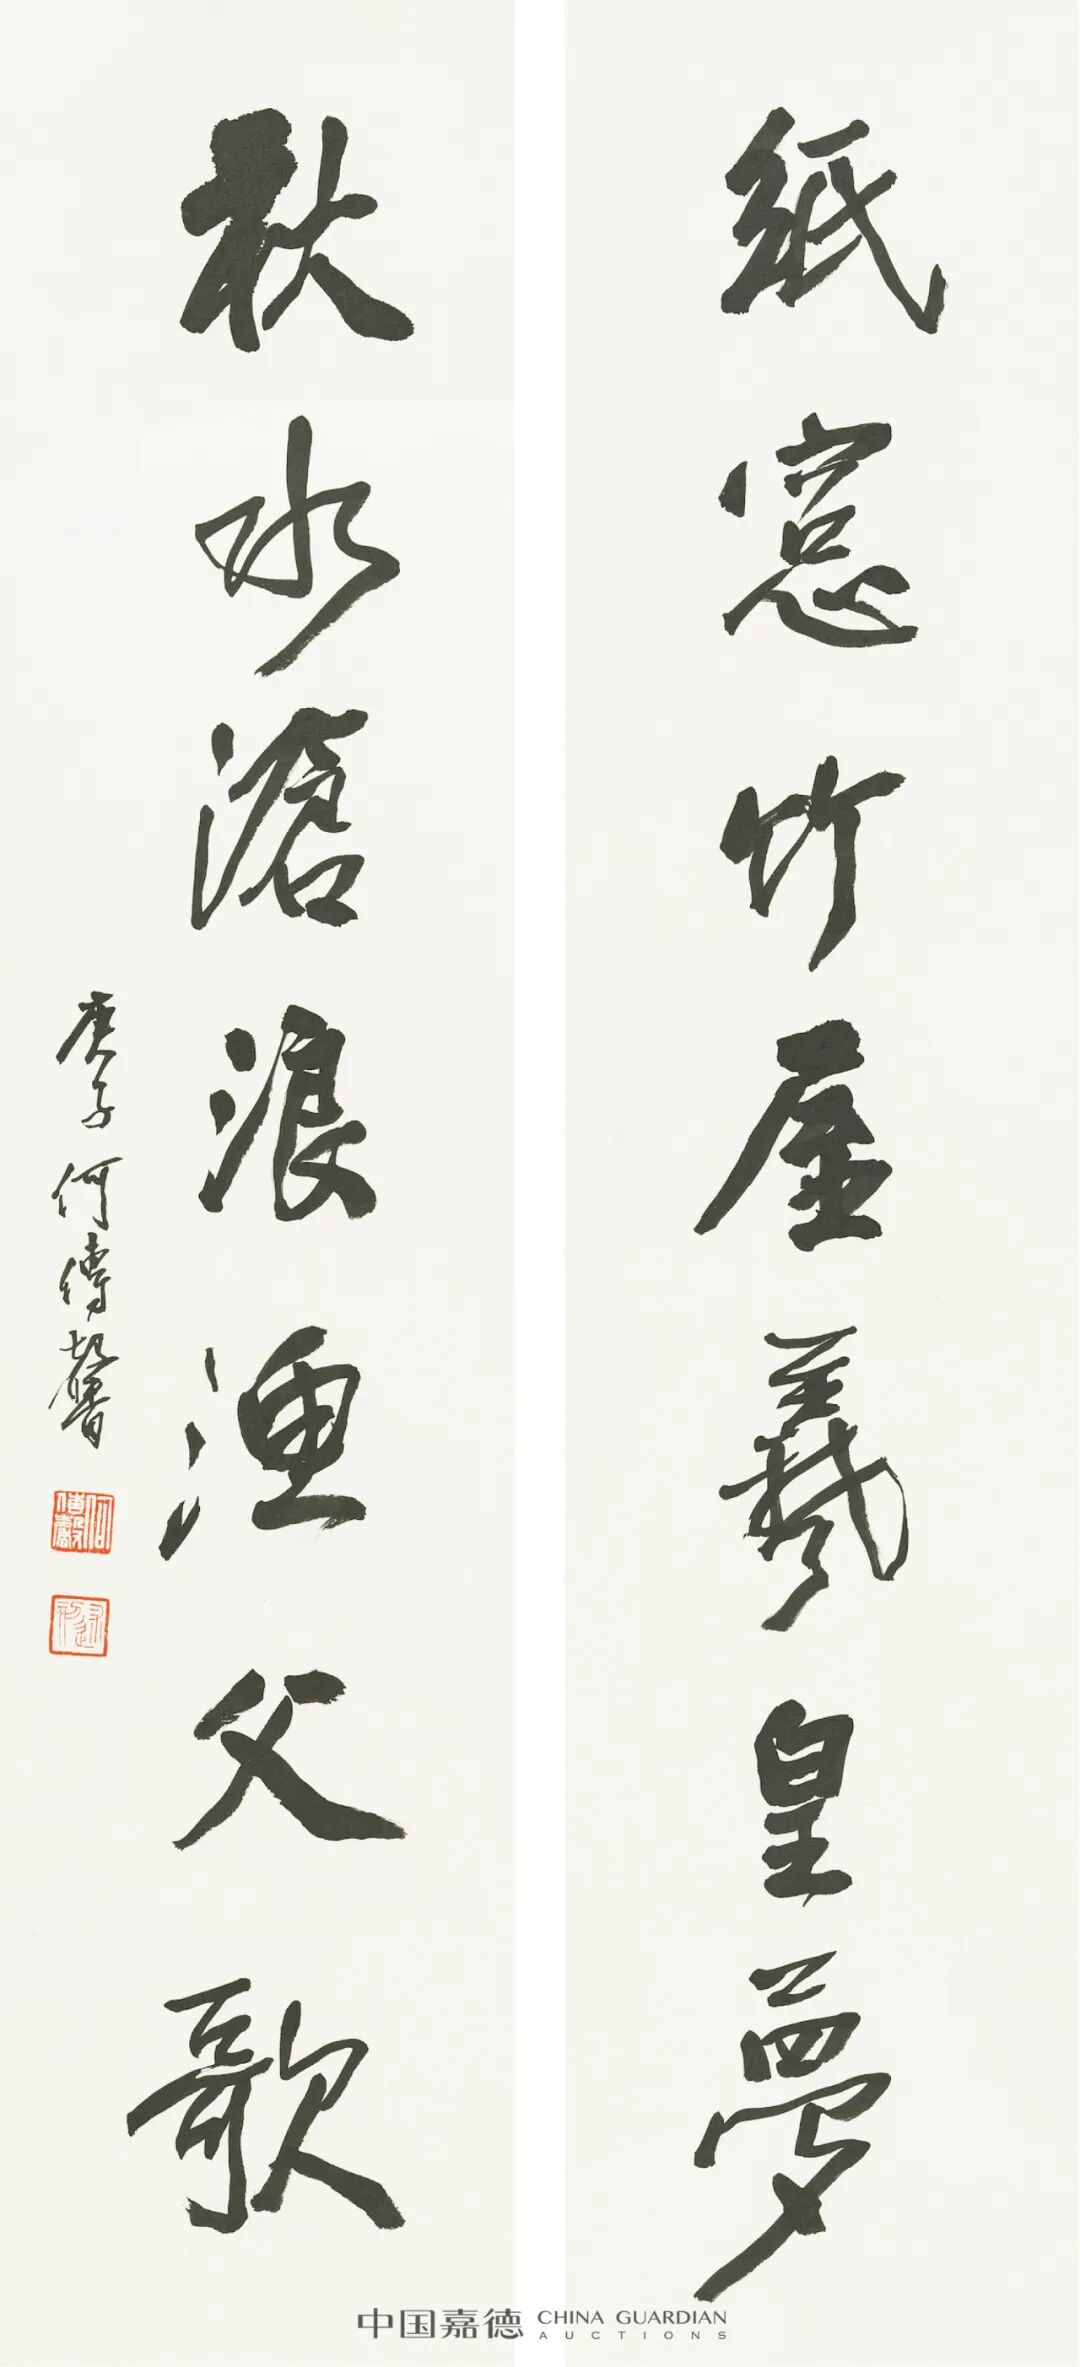 紙窓竹屋羲皇夢
秋水滄浪漁父歌
庚子何傳馨
何傳馨
中国嘉德 CHINA GUARDIAN
AUCTIONS